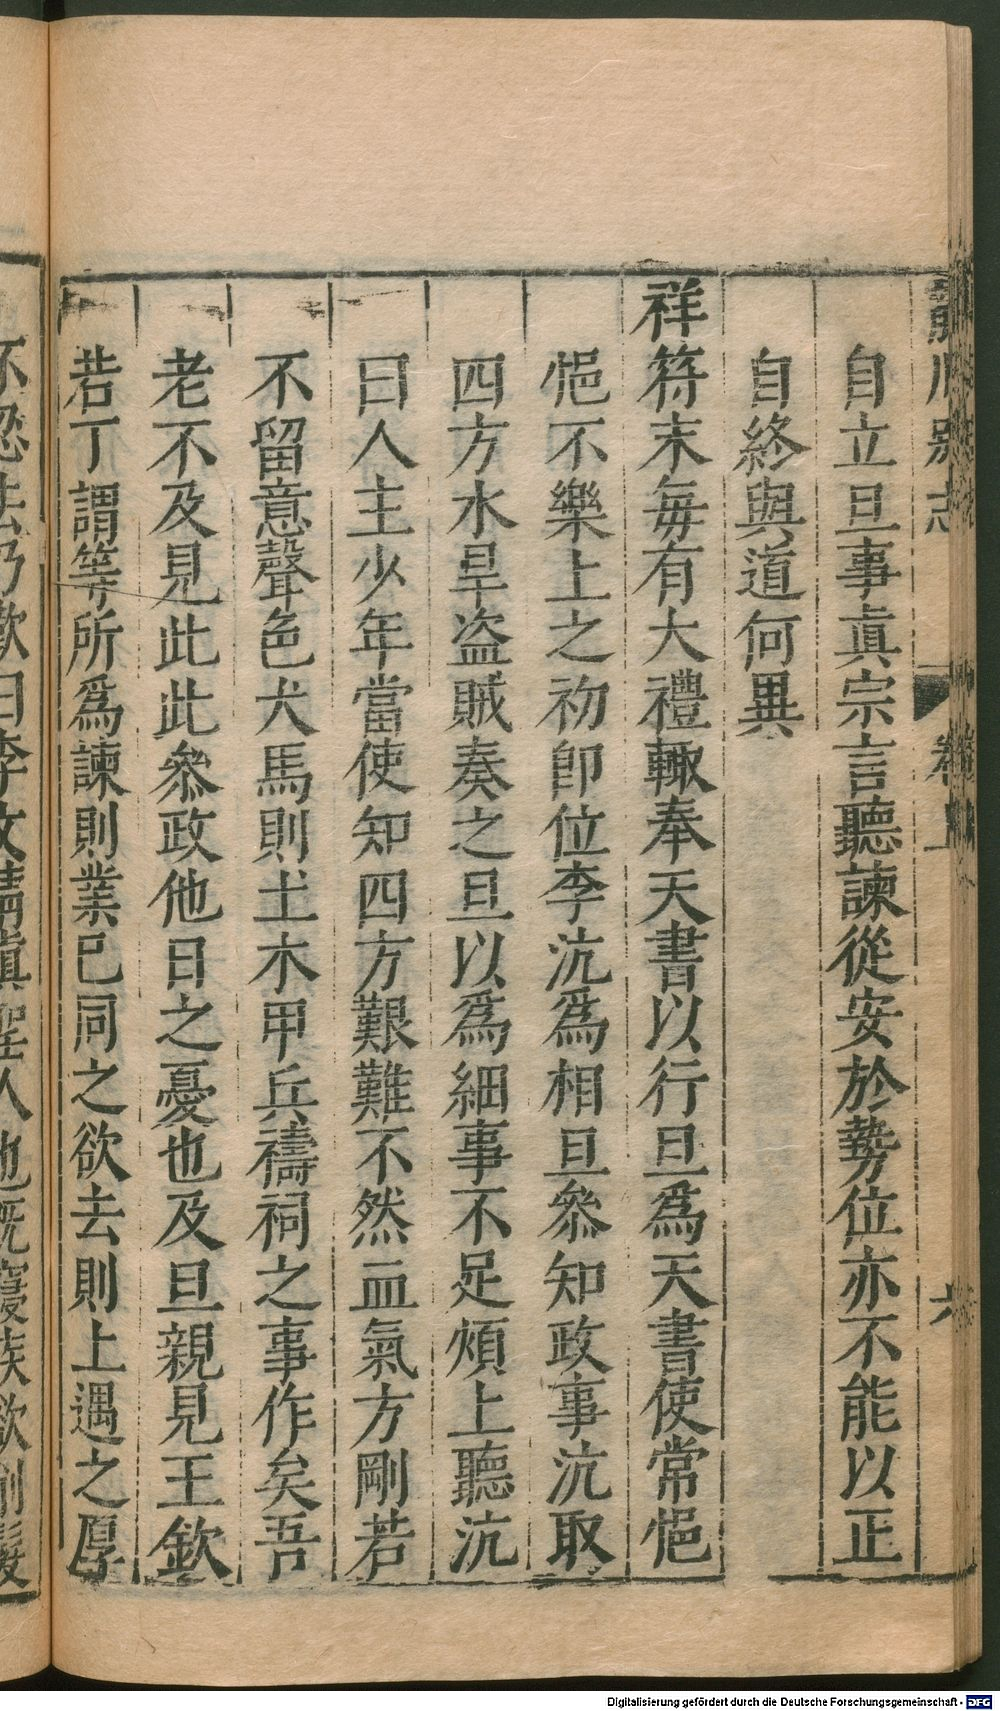 龍川別志 卷上 六
自立旦事眞宗言聽諫從安於勢位亦不能以正
自終與道何異
祥符末每有大禮輙奉天書以行旦爲天書使常悒
悒不樂上之初卽位李沆爲相旦叅知政事沆取
四方水旱盗賊奏之旦以爲細事不足煩上聽沆
曰人主少年當使知四方艱難不然血氣方剛若
不留意聲色犬馬則土木甲兵禱祠之事作矣吾
老不及見此此叅政他日之憂也及旦親見王欽
若丁謂等所爲諫則業已同之欲去則上遇之厚
不忍去乃歎曰李文靖眞聖人也旣寢疾欲削髮
Digitalisierung gefördert durch die Deutsche Forschungsgemeinschaft - DFG